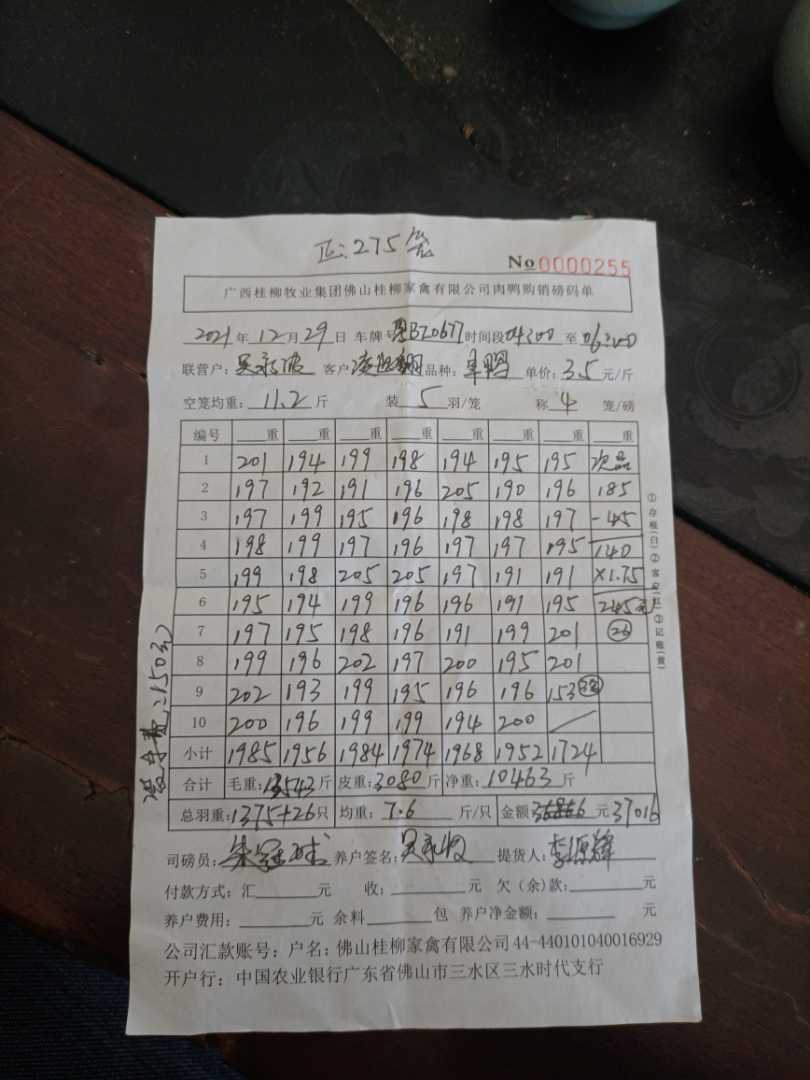 正：275笼
No 0000255
广西桂柳牧业集团佛山桂柳家禽有限公司肉鸭购销磅码单
2021年12月29日 车牌号粤BZ0677时间段04:00至06:00
联营户： 客户 品种： 单价：3.5元/斤
空笼均重：11.2斤 装5羽/笼 称4笼/磅
编号 重 重 重 重 重 重 重 重
1 201 194 199 198 194 195 195 次品
2 197 192 191 196 205 190 196 185
3 197 199 195 196 198 198 197 -45
4 198 199 197 196 197 197 195 140
5 199 198 205 205 197 191 191 ×1.75
6 195 194 199 196 196 191 195 245元
7 197 195 198 196 191 199 201 26
8 199 196 202 197 200 195 201
9 202 193 199 195 196 196 153
10 200 196 199 199 194 200
小计 1985 1956 1984 1974 1968 1952 1724
合计 毛重：13543斤 皮重：3080斤 净重：10463斤
总羽重：1375+26只 均重：7.6斤/只 金额36866元37016
①存根(白)②客户(红)③记账(黄)
:150元
司磅员： 养户签名： 提货人：李源辉
付款方式：汇 元 收： 元 欠(余)款： 元
养户费用： 元 余料 包 养户净金额： 元
公司汇款账号：户名：佛山桂柳家禽有限公司 44-440101040016929
开户行：中国农业银行广东省佛山市三水区三水时代支行